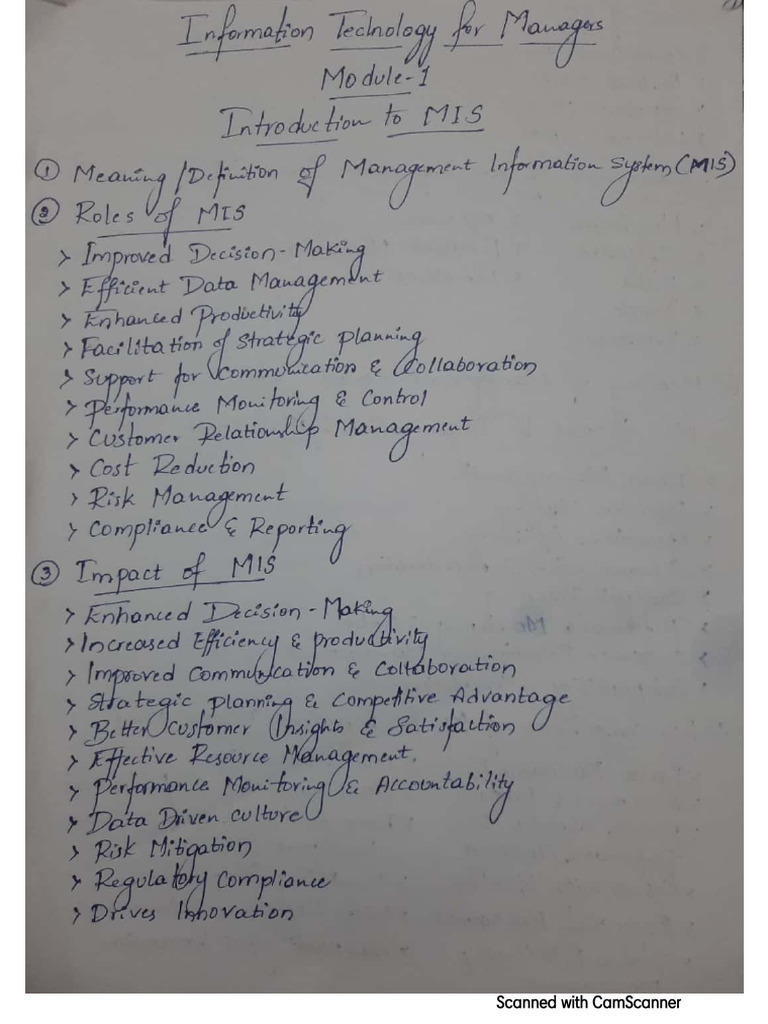 Information Technology for Managers
Module-1
Introduction to MIS
① Meaning/Definition of Management Information System (MIS)
② Roles of MIS
> Improved Decision-Making
> Efficient Data Management
> Enhanced Productivity
> Facilitation of Strategic Planning
> Support for Communication & Collaboration
> Performance Monitoring & Control
> Customer Relationship Management
> Cost Reduction
> Risk Management
> Compliance & Reporting
③ Impact of MIS
> Enhanced Decision-Making
> Increased Efficiency & productivity
> Improved Communication & Collaboration
> Strategic planning & Competitive Advantage
> Better Customer Insights & Satisfaction
> Effective Resource Management.
> Performance Monitoring & Accountability
> Data Driven culture
> Risk Mitigation
> Regulatory Compliance
> Drives Innovation
Scanned with CamScanner